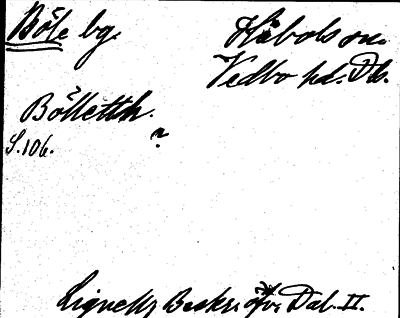 Böle bg. Håbols sn.
Vedbo hd. Dls.
Böllettth.
S. 106. ?
Lignells Beskr. öfv. Dal. II.